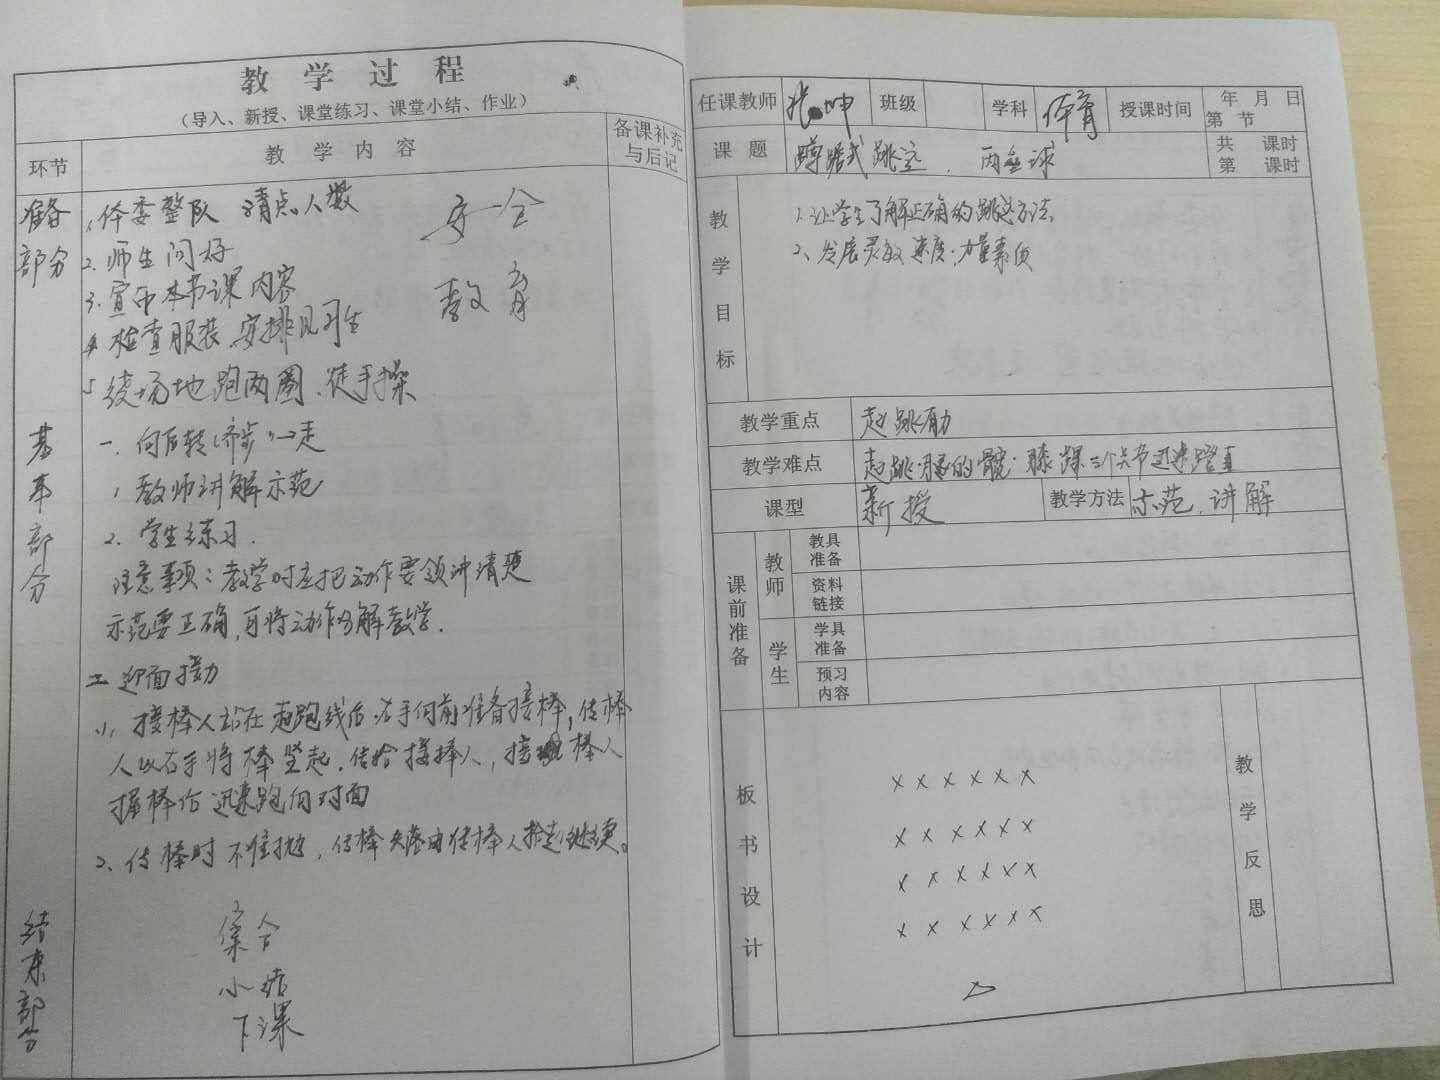 教学过程
（导入、新授、课堂练习、课堂小结、作业）
环节
教学内容
备课补充
与后记
准备
部分
1、体委整队 清点人数
2. 师生问好
3. 宣布本节课内容
4 检查服装、安排见习生
5 绕场地跑两圈、徒手操
安全
教育
基本部分
一、向后转 齐步→走
1 教师讲解示范
2. 学生练习.
注意事项：教学时应把动作要领讲清楚
示范要正确,可将动作分解教学.
二 迎面接力
1、接棒人站在起跑线后 右手向前准备接棒, 传棒
人以右手将棒竖起、传给接棒人, 接棒人
握棒后 迅速跑向对面
2、传棒时不准抛, 传棒失落由传棒人拾起继续。
结束部分
集合
小结
下课
任课教师 张坤 班级 学科 体育 授课时间 年 月 日
第 节
课题 蹲踞式跳远、 共 课时
第 课时
教学目标
1、让学生了解正确的跳远方法、
2、发展灵敏 速度、力量素质
教学重点 起跳有力
教学难点 起跳腿的髋、膝 踝三个关节迅速蹬直
课型 新授 教学方法 示范、讲解
课前准备
教师
教具
准备
资料
链接
学生
学具
准备
预习
内容
板书设计
× × × × × ×
× × × × × ×
× × × × × ×
× × × × × ×
教学反思